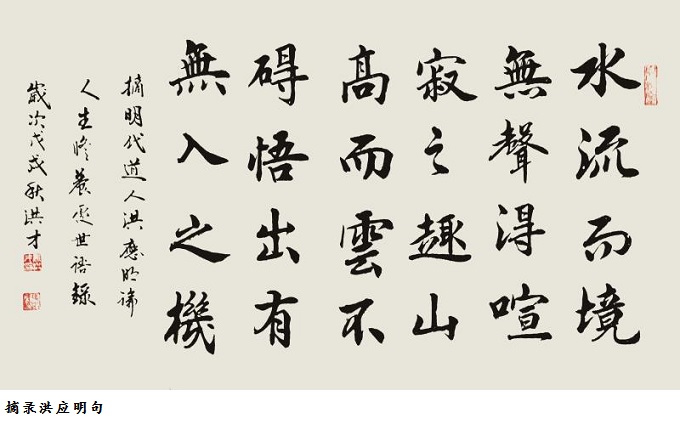 水流而境
無聲得喧
寂之趣山
高而雲不
碍悟出有
無入之機
摘明代道人洪應明論
人生修養處世語錄
歲次戊戌秋洪才
摘录洪应明句